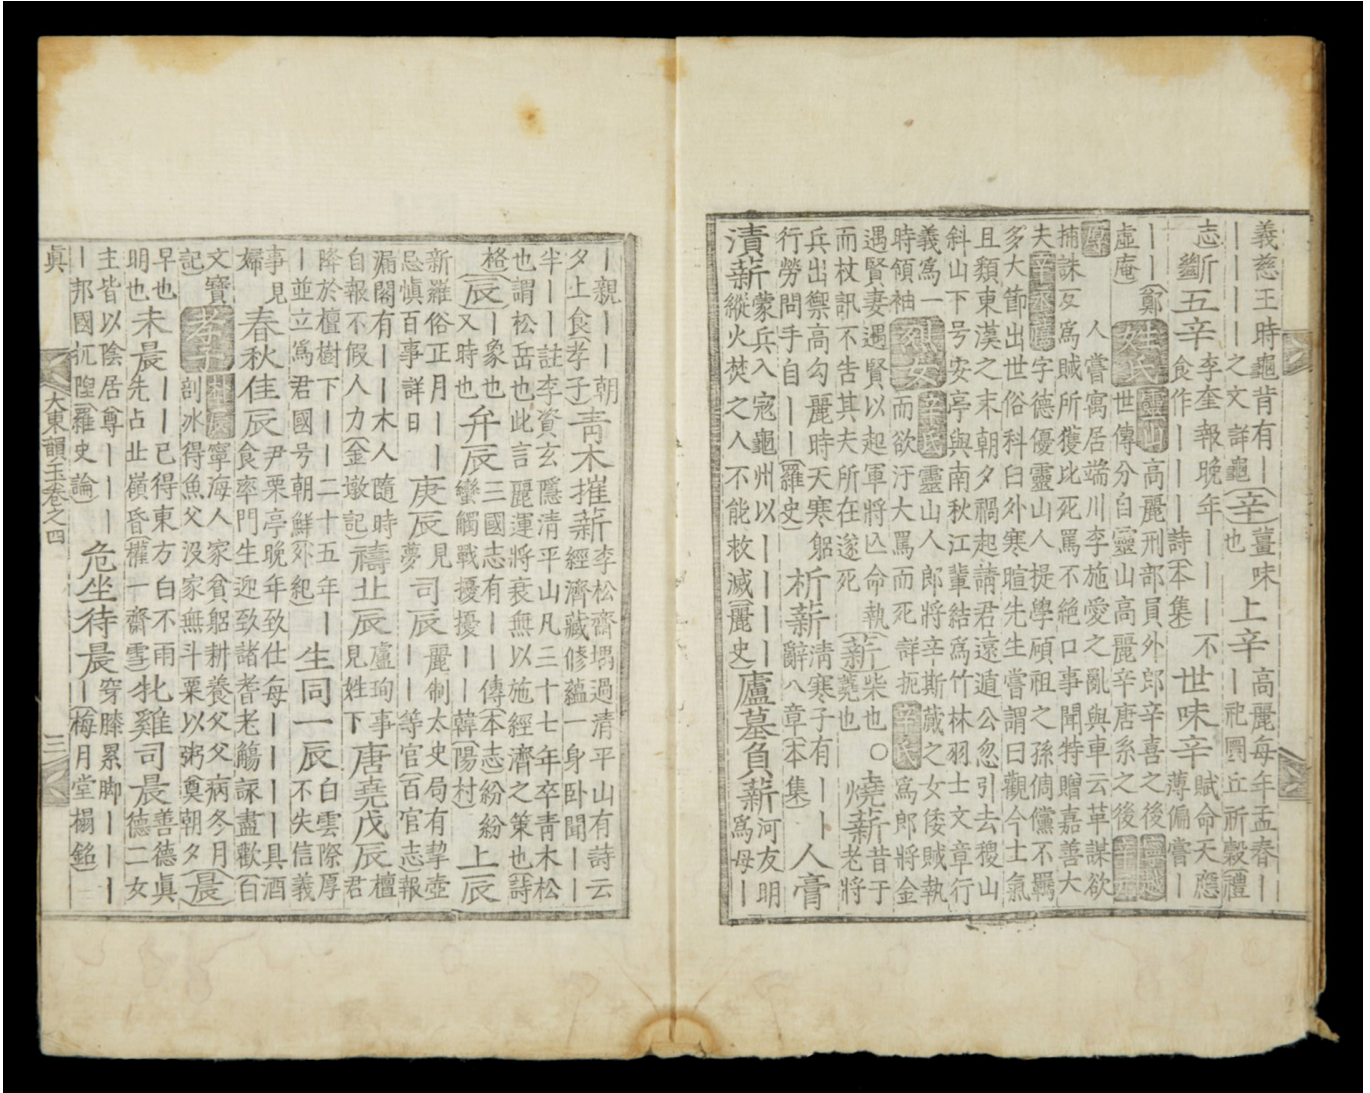 義慈王時龜背有｜｜｜｜｜之文詳龜(辛)薑味也上辛高麗每年孟春｜｜祀圜丘祈穀(禮
志斷五辛李奎報晚年｜｜｜不食作｜｜｜詩(本集世味辛賦命天應薄偏嘗｜
｜｜(鄭虛庵)姓氏靈山高麗刑部員外郎辛喜之後世傳分自靈山高麗辛唐系之後寧越
人嘗寓居端川李施愛之亂與車云革謀欲捕誅反爲賊所獲比死罵不絕口事聞特贈嘉善大
夫辛永禧字德優靈山人提學碩祖之孫倜儻不羈多大節出世俗科臼外寒暄先生嘗謂曰觀今士氣
且類東漢之末朝夕禍起請君遠遁公忽引去稷山斜山下号安亭與南秋江輩結爲竹林羽士文章行
義爲一時領袖烈女辛氏靈山人郎將辛斯蕆之女倭賊執而欲汙大罵而死詳扼辛氏爲郎將金
遇賢妻遇賢以起軍將亡命執而杖訊不告其夫所在遂死(薪)柴也蕘也○燒薪昔于老將
兵出禦高勾麗時天寒躬行勞問手自｜｜(羅史)析薪淸寒子有｜｜辭八章(本集)人膏
漬薪蒙兵入寇龜州以｜｜｜｜縱火焚之人不能救滅(麗史)廬墓負薪河友明爲母｜
｜親｜｜｜朝夕上食(孝子靑木摧薪李松齋堣過清平山有詩云經濟藏修蘊一身卧聞｜｜
半｜｜註李資玄隱清平山凡三十七年卒靑木松也謂松岳也此言麗運將衰無以施經濟之策也(詩
格)(辰)｜象也又時也弁辰三國志有｜｜傳(本志)紛紛蠻觸戰擾擾｜｜韓(陽村)上辰
新羅俗正月｜｜忌愼百事詳日庚辰見夢司辰麗制太史局有挈壺｜｜等官(百官志報
漏閣有｜｜木人隨時自報不假人力(金墩記)禱北辰盧珣事見姓下唐堯戊辰檀君
降於檀樹下｜｜｜二十五年｜｜並立爲君國号朝鮮(外紀)生同一辰白雲際厚不失信義
事見婦春秋佳辰尹栗亭晚年致仕每｜｜｜｜具酒食率門生迎致諸耆老觴詠盡歡(百
文寶記)孝子寧海人家貧躬耕養父父病冬月剖冰得魚父沒家無斗粟以粥奠朝夕(晨)
早也明也未晨｜｜已得東方白不雨先占北嶺昏(權一齋雪)牝雞司晨善德眞德二女
主皆以陰居尊｜｜｜｜邦國抏隍(羅史論)危坐待晨穿膝累脚｜｜｜｜(梅月堂楊銘)
眞
大東韻玉卷之四
三